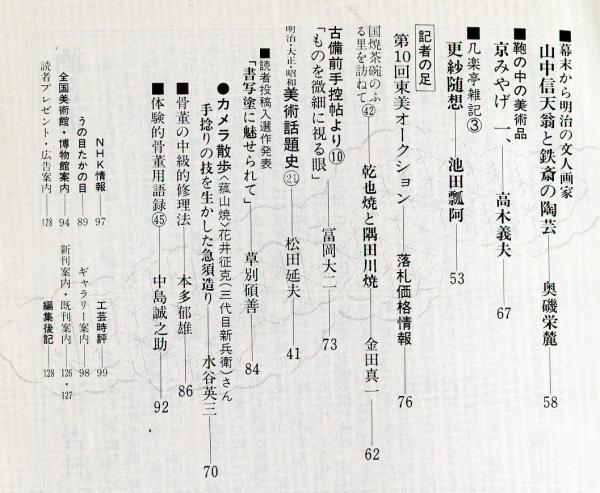 ■幕末から明治の文人画家
山中信天翁と鉄斎の陶芸――奥磯栄麓――58
■鞄の中の美術品
京みやげ 一、――高木義夫――67
■几楽亭雑記③
更紗随想――池田瓢阿――53
記者の足
第10回東美オークション――落札価格情報――76
国焼茶碗のふる里を訪ねて㊷
乾也焼と隅田川焼――金田真一――62
古備前手控帖より⑩
「ものを微細に視る眼」――冨岡大二――73
明治・大正・昭和美術話題史㉑――松田延夫――41
■読者投稿入選作発表
「書写塗に魅せられて」――草別碩善――84
●カメラ散歩〈菰山焼〉花井征克(三代目新兵衛)さん
手捻りの技を生かした急須造り――水谷英三――70
■骨董の中級的修理法――本多郁雄――86
■体験的骨董用語録㊺――中島誠之助――92
NHK情報――97
工芸時評――99
うの目たかの目――89
ギャラリー案内――98
全国美術館・博物館案内――94
新刊案内・既刊案内――126・127
読者プレゼント・広告案内――128
編集後記――128